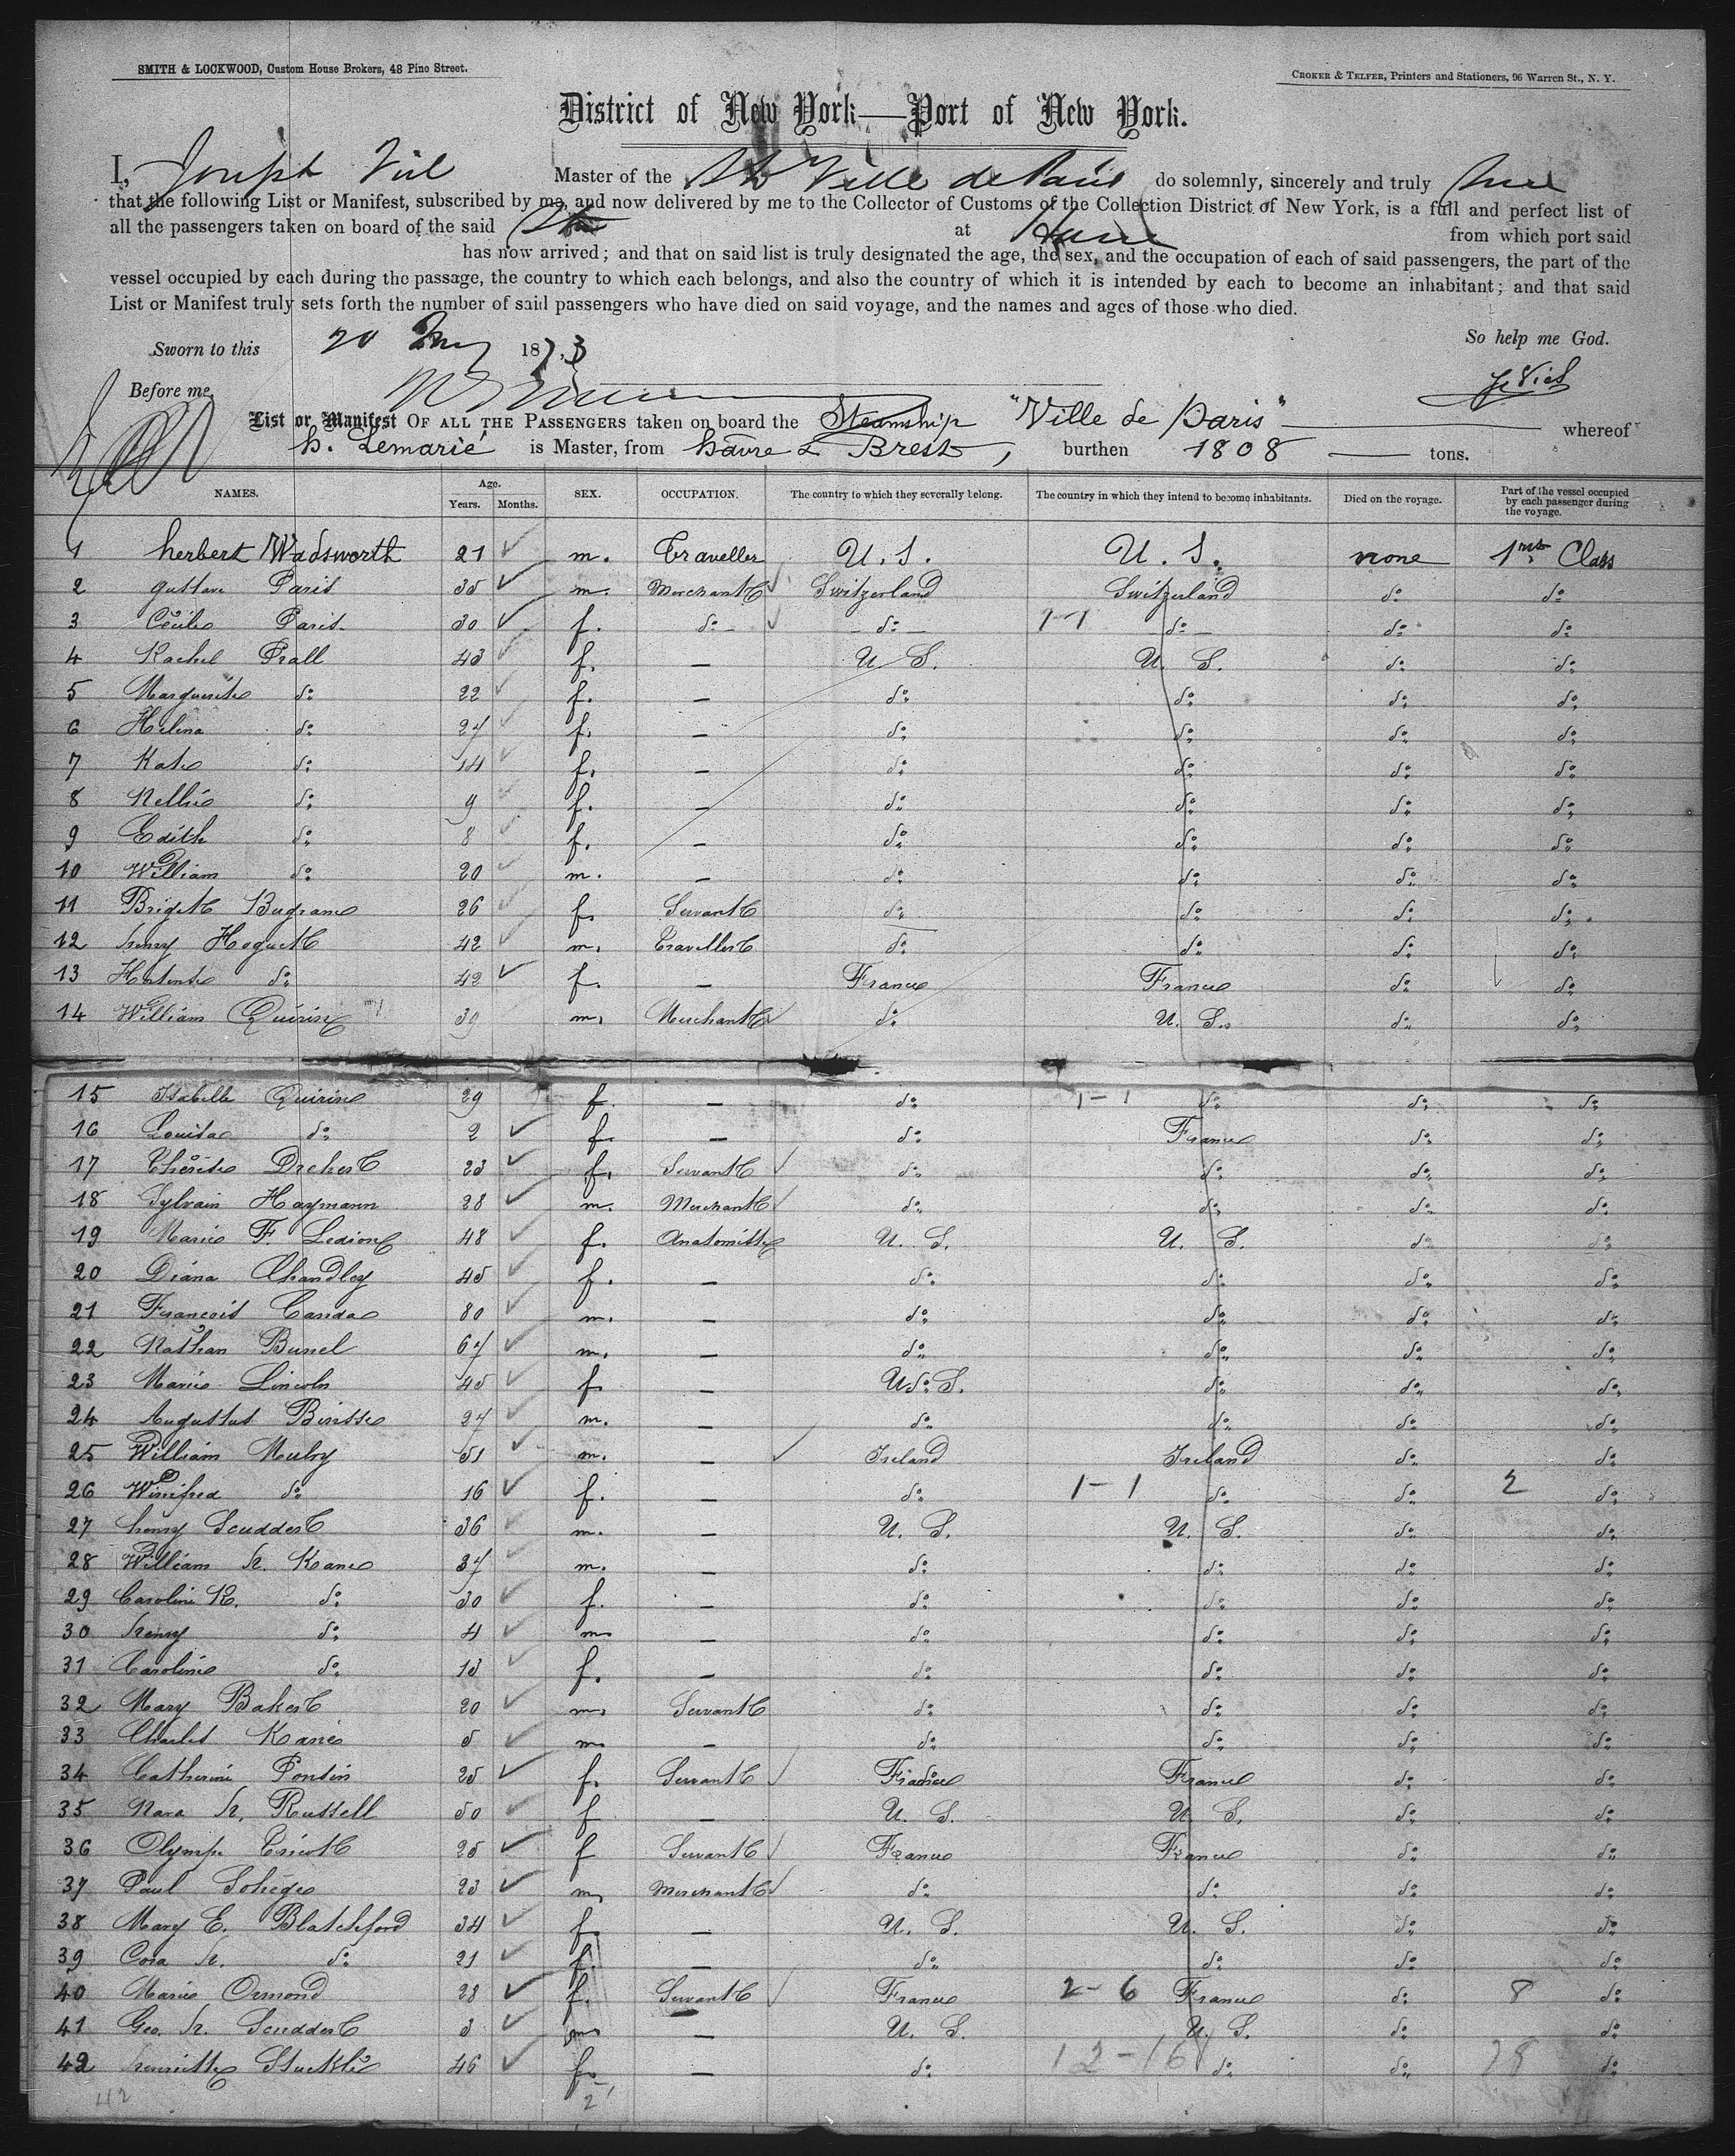 SMITH & LOCKWOOD, Custom House Brokers, 48 Pine Street.
CROKER & TELFER, Printers and Stationers, 96 Warren St., N. Y.
District of New York—Port of New York.
I, Joseph Master of the Ville de Paris do solemnly, sincerely and truly
that the following List or Manifest, subscribed by me, and now delivered by me to the Collector of Customs of the Collection District of New York, is a full and perfect list of
all the passengers taken on board of the said at Havre from which port said
has now arrived; and that on said list is truly designated the age, the sex, and the occupation of each of said passengers, the part of the
vessel occupied by each during the passage, the country to which each belongs, and also the country of which it is intended by each to become an inhabitant; and that said
List or Manifest truly sets forth the number of said passengers who have died on said voyage, and the names and ages of those who died.
So help me God.
Sworn to this 20 1873
Before me,
List or Manifest OF ALL THE PASSENGERS taken on board the Steamship "Ville de Paris" whereof
Lemarié is Master, from havre & Brest, burthen 1808 tons.
NAMES. Age. Years. Months. SEX. OCCUPATION. The country to which they severally belong. The country in which they intend to become inhabitants. Died on the voyage. Part of the vessel occupied by each passenger during the voyage.
1 herbert Wadsworth 21 m. Traveller U. S. U. S. none 1rst Class
2 gustave Paris 35 m. Merchant Switzerland Switzerland do do
3 Cécile Paris 30 f. do do 1-1 do do do
4 Rachel Prall 43 f. — U S. U. S. do do
5 Marguerite do 22 f. — do do do do
6 Helena do 24 f. — do do do do
7 Kate do 14 f. — do do do do
8 Nellie do 9 f. — do do do do
9 Edith do 8 f. — do do do do
10 William do 20 m. — do do do do
11 Brigitt 26 f. Servant do do do do
12 henry Hoguet 42 m. Traveller do do do do
13 Hortense do 42 f. — France France do do
14 William Quirin 39 m. Merchant do U. S. do do
15 Isabelle Quirin 29 f. — do 1-1 do do do
16 Louisa do 2 f. — do France do do
17 Thérèse Drcher 23 f. Servant do do do do
18 Sylvain Haymann 28 m. Merchant do do do do
19 Marie F. 48 f. U. S. U. S. do do
20 Diana Chandley 45 f. — do do do do
21 François Canda 80 m. — do do do do
22 Nathan 64 m. — do do do do
23 Marie Lincoln 45 f — U. do S. do do do
24 Augustus Binsse 24 m. — do do do do
25 William Mulry 51 m. — Ireland Ireland do do
26 Winifred do 16 f. — do 1-1 do do 2 do
27 henry Scudder 36 m. — U. S. U. S. do do
28 William h. Kane 34 m. — do do do do
29 Caroline K. do 30 f. — do do do do
30 henry do 4 m — do do do do
31 Caroline do 13 f. — do do do do
32 Mary Baker 20 m. Servant do do do do
33 Charles Kane 5 m — do do do do
34 Catherine Pontin 25 f. Servant France France do do
35 h. Russell 50 f — U. S. U S. do do
36 Olympe 25 f Servant France France do do
37 Paul Sohege 23 m. Merchant do do do do
38 Mary E. Blatchford 34 f. — U. S. U. S. do do
39 Cora h. do 21 f. — do do do do
40 Marie Ormond 28 f. Servant France 2-6 France do 8 do
41 Geo. h. Scudder 3 m — U. S. U. S. do do
42 henriette 46 f. — do 12-16 do do 28 do
42 2